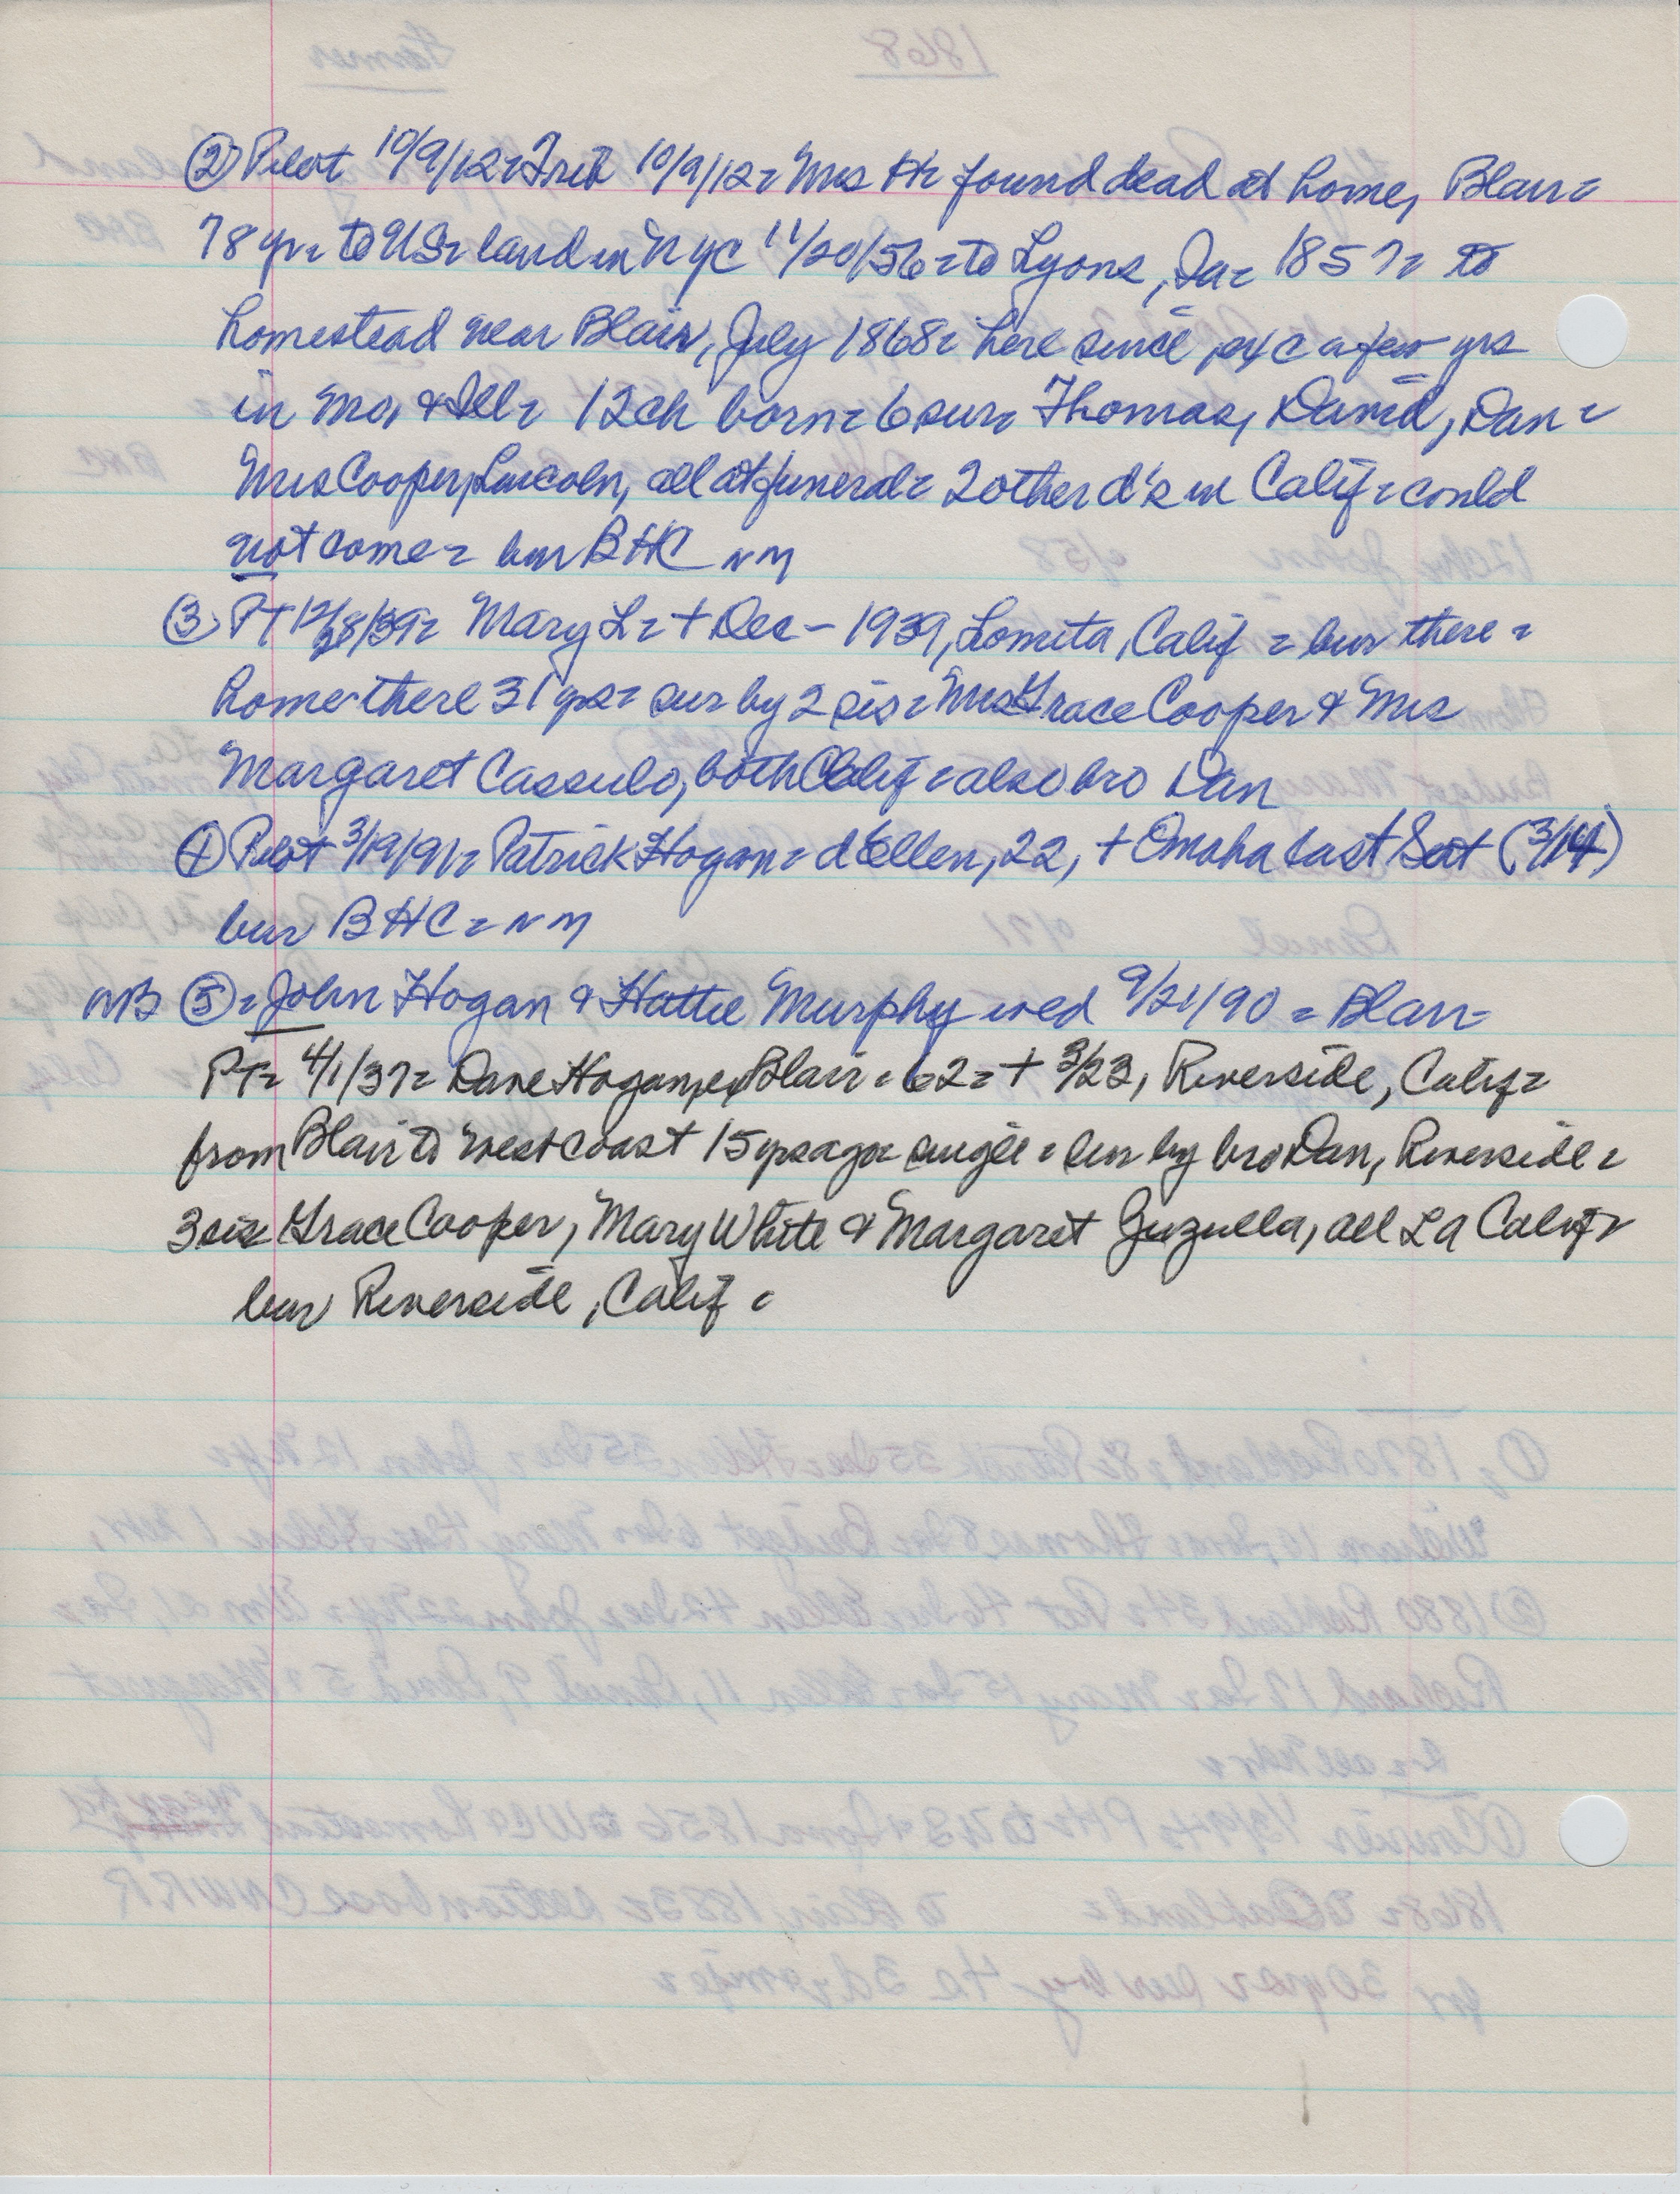 ② Pilot 10/9/12 = Trib 10/9/12 = Mrs H = found dead at home, Blair =
78 yr = to US = land in NYC 11/20/56 = to Lyons, Ia = 1857 = to
homestead near Blair, July 1868 = here since, exc a few yrs
in Mo, & Ill = 12 ch born = 6 sur = Thomas, David, Dan =
Mrs Cooper, Lincoln, all at funeral = 2 other d's in Calif = could
not come = bur BHC NM
③ PT 12/28/39 = Mary L = + Dec – 1939, Lomita, Calif = bur there =
home there 31 yrs = sur by 2 sis = Mrs Grace Cooper & Mrs
Margaret Cassulo, both Calif = also bro Dan
④ Pilot 3/19/91 = Patrick Hogan = d Ellen, 22, + Omaha last Sat (3/14)
bur BHC = NM
NB ⑤ = John Hogan & Hattie Murphy wed 9/21/90 = Blair =
PT = 4/1/37 = Dave Hogan, ex Blair = 62 = + 3/23, Riverside, Calif =
from Blair to west coast 15 yrs ago = single = sur by bro Dan, Riverside =
3 sis = Grace Cooper, Mary White & Margaret Guzulla, all LA Calif =
bur Riverside, Calif =